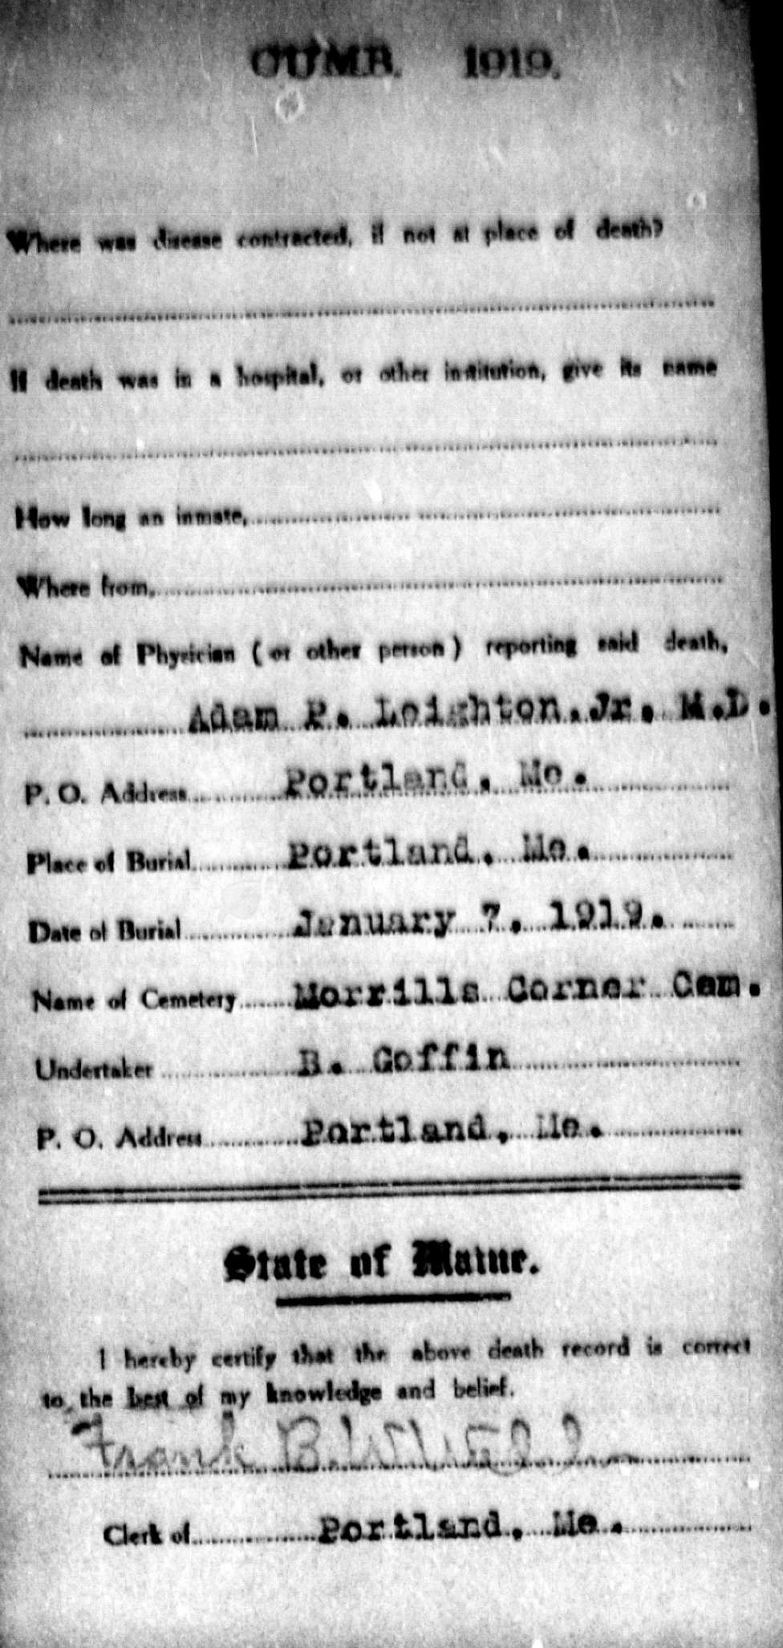 CUMB. 1919.
Where was disease contracted, if not at place of death?
If death was in a hospital, or other institution, give its name
How long an inmate,
Where from,
Name of Physician (or other person) reporting said death,
Adam P. Leighton, Jr. M.D.
P. O. Address Portland, Me.
Place of Burial Portland, Me.
Date of Burial January 7, 1919.
Name of Cemetery Morrills Corner Cem.
Undertaker B. Coffin
P. O. Address Portland, Me.
State of Maine.
I hereby certify that the above death record is correct
to the best of my knowledge and belief.
Frank B.
Clerk of Portland, Me.